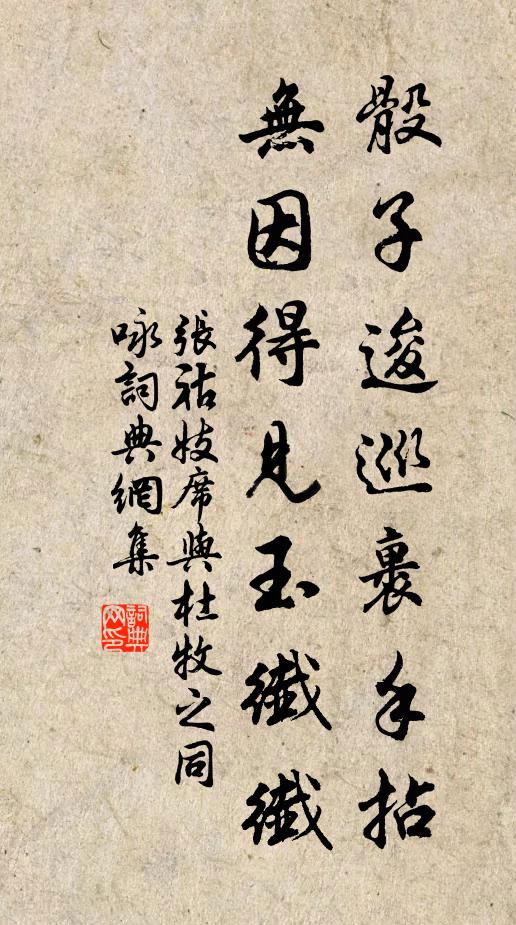 骰子逡巡裹手拈
無因得見玉纖纖
張祜妓席與杜牧之同
咏詞典網集
詞典网印